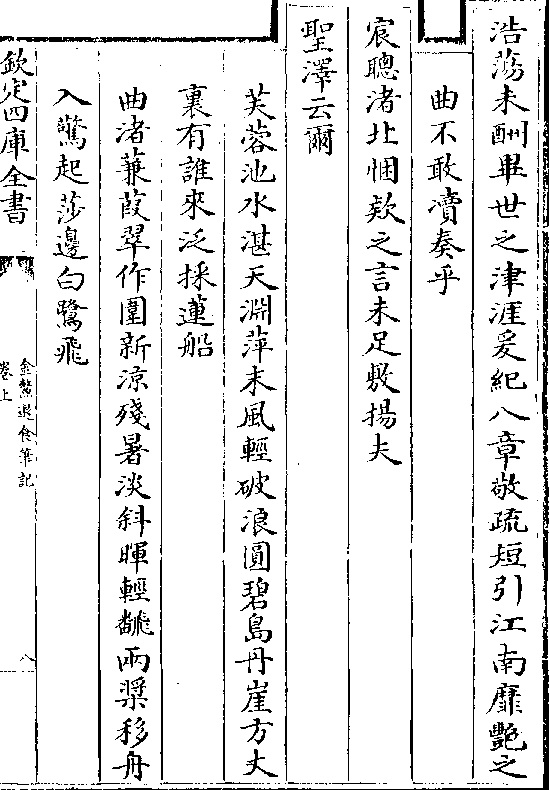 浩蕩未酬畢世之津涯爰紀八章敬疏短引江南靡艷之
曲不敢瀆奏乎
宸聰渚北悃欵之言未足敷揚夫
聖澤云爾
芙蓉池水湛天淵萍末風輕破浪圓碧島丹崖方丈
裏有誰來泛採蓮船
曲渚蒹葭翠作圍新凉殘暑淡斜暉輕𦪭兩槳移舟
入驚起莎邊白鷺飛
欽定四庫全書
金鰲退食筆記
卷上
八